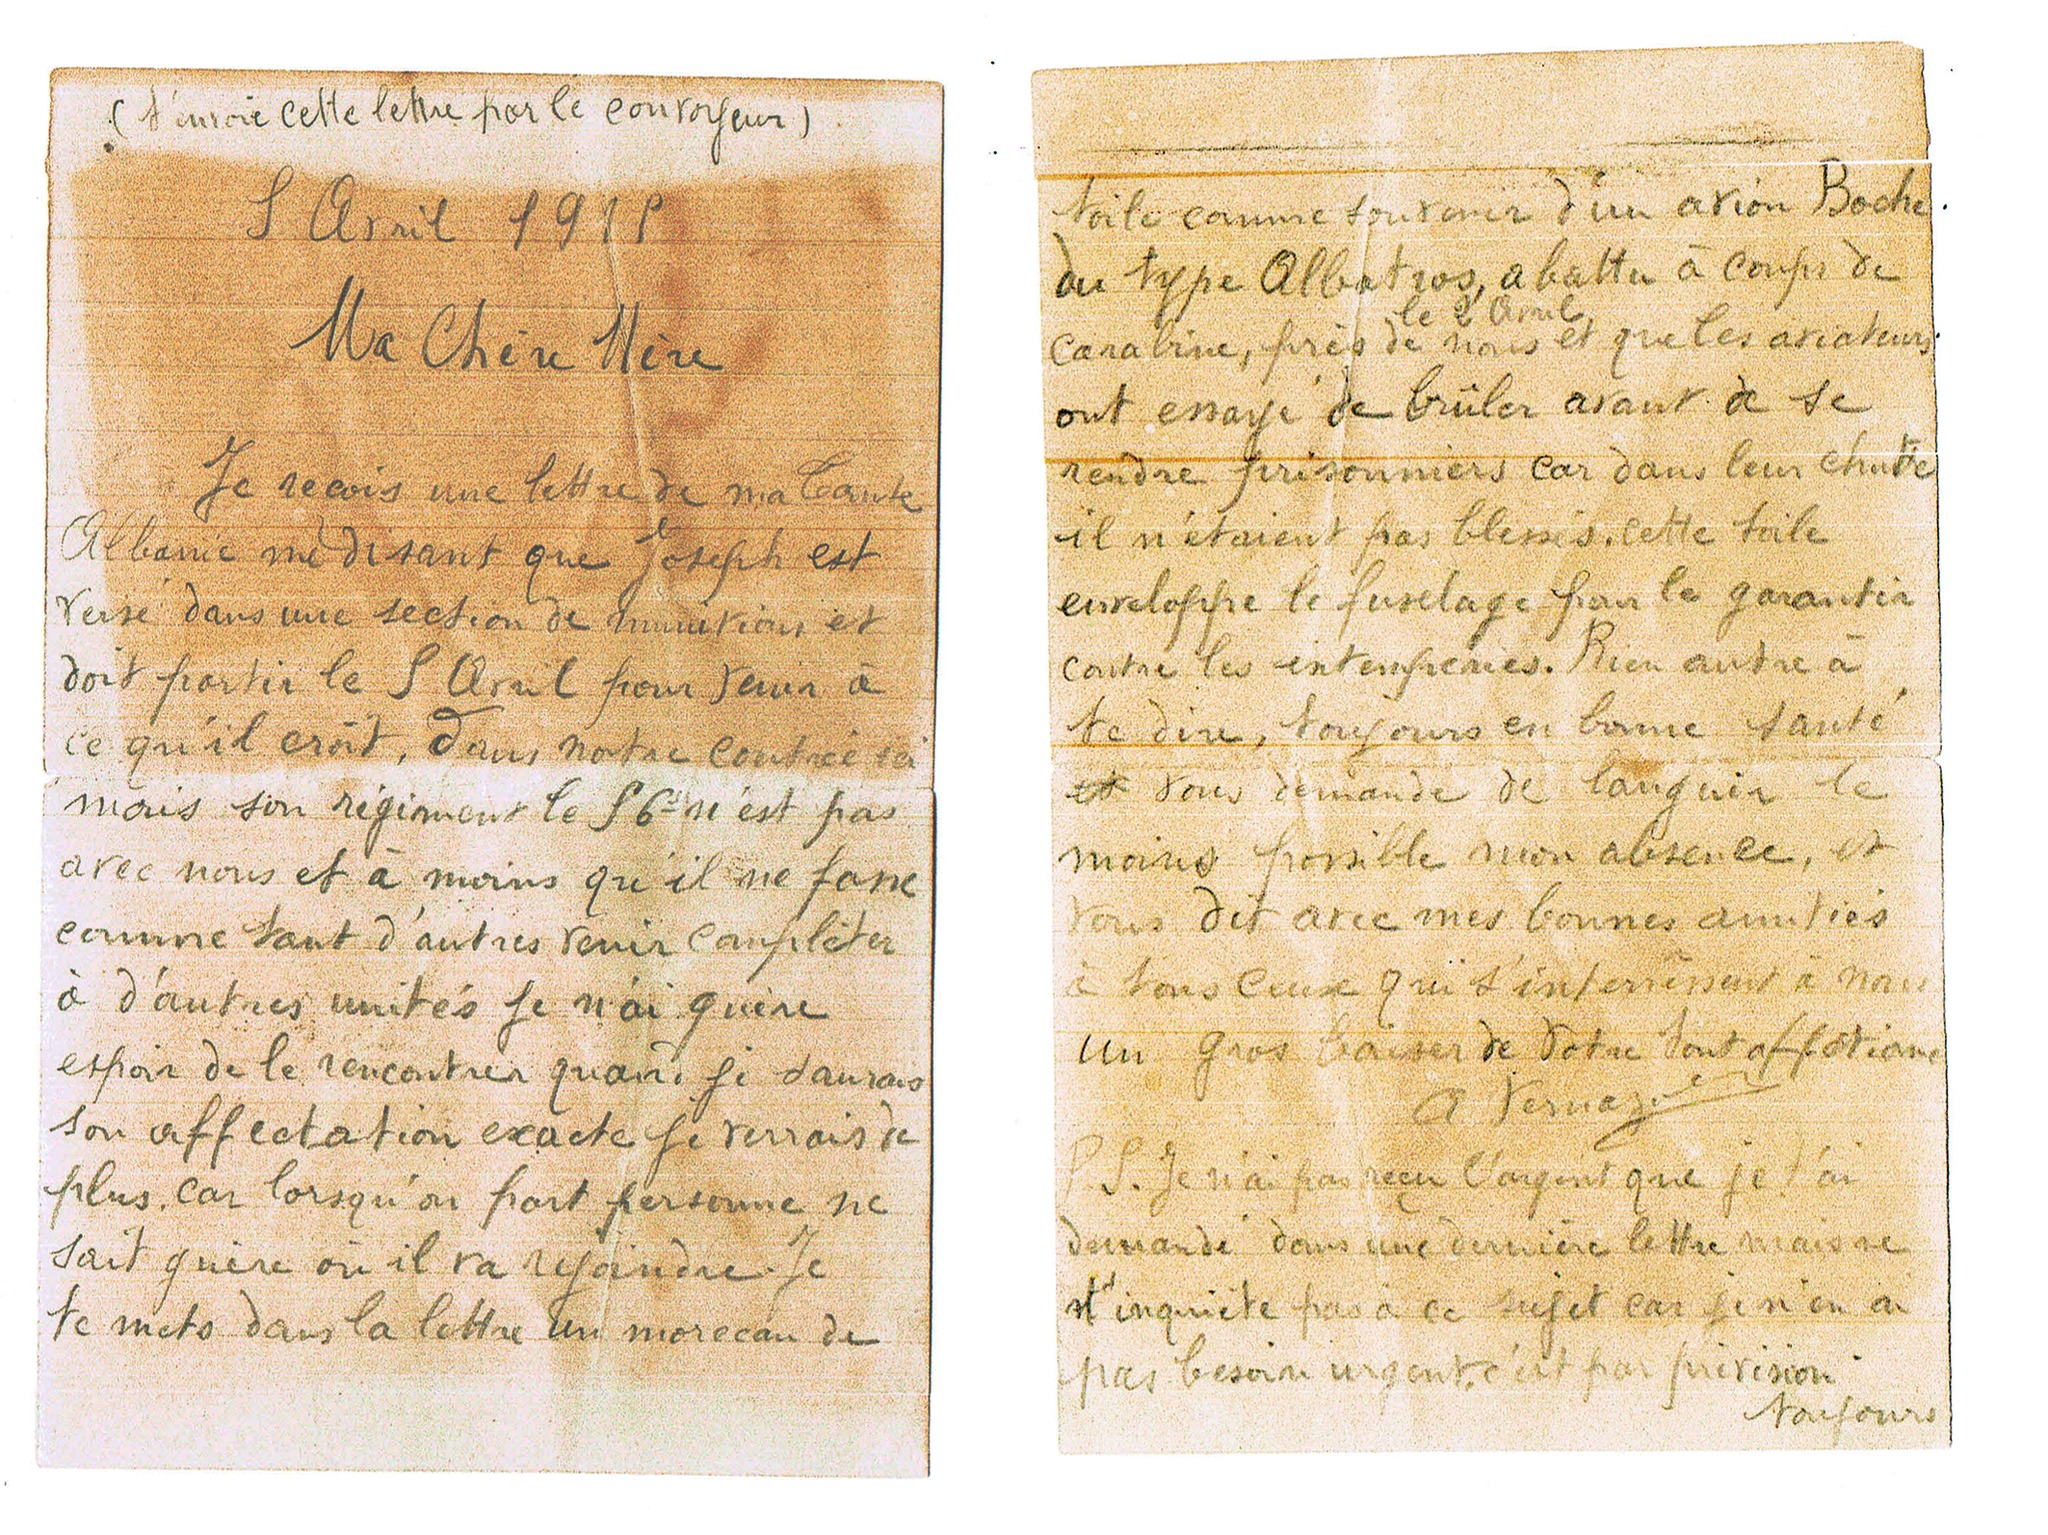 (t'envoie cette lettre par le convoyeur)
5 Avril 1915
Ma Chère Mère
Je recois une lettre de ma tante
Albanie me disant que Joseph est
versé dans une section de munitions et
doit partir le 5 Avril pour venir à
ce qu'il croît, Dans notre contrée ici
mais son régiment le 56e n'est pas
avec nous et à moins qu'il ne fasse
comme tant d'autres venir complèter
à d'autres unités je n'ai guère
espoir de le rencontrer quand je saurais
son affectation exacte je verrais de
plus. car lorsqu'on part personne ne
sait guère où il va rejoindre. Je
te mets dans la lettre un morceau de
toile comme souvenir d'un avion Boche
du type Albatros, abattu à coups de
le 2 Avril
carabine, près de nous et que les aviateurs
ont essayé de brûler avant de se
rendre prisonniers car dans leur chutte
il n'étaient pas blessés. cette toile
enveloppe le fuselage pour le garantir
contre les intemperies. Rien autre à
te dire, toujours en bonne santé
et vous demande de languir le
moins possible mon absence, et
vous dit avec mes bonnes amitiés
à tous ceux qui s'interrêssent à nous
un gros baiser de votre tout affétionné
A Vernaz
P.S. Je n'ai pas reçu l'argent que je t'ai
demandé dans une dernière lettre mais ne
t'inquiète pas à ce sujet car je n'en ai
pas besoin urgent, c'est par prévision
toujours